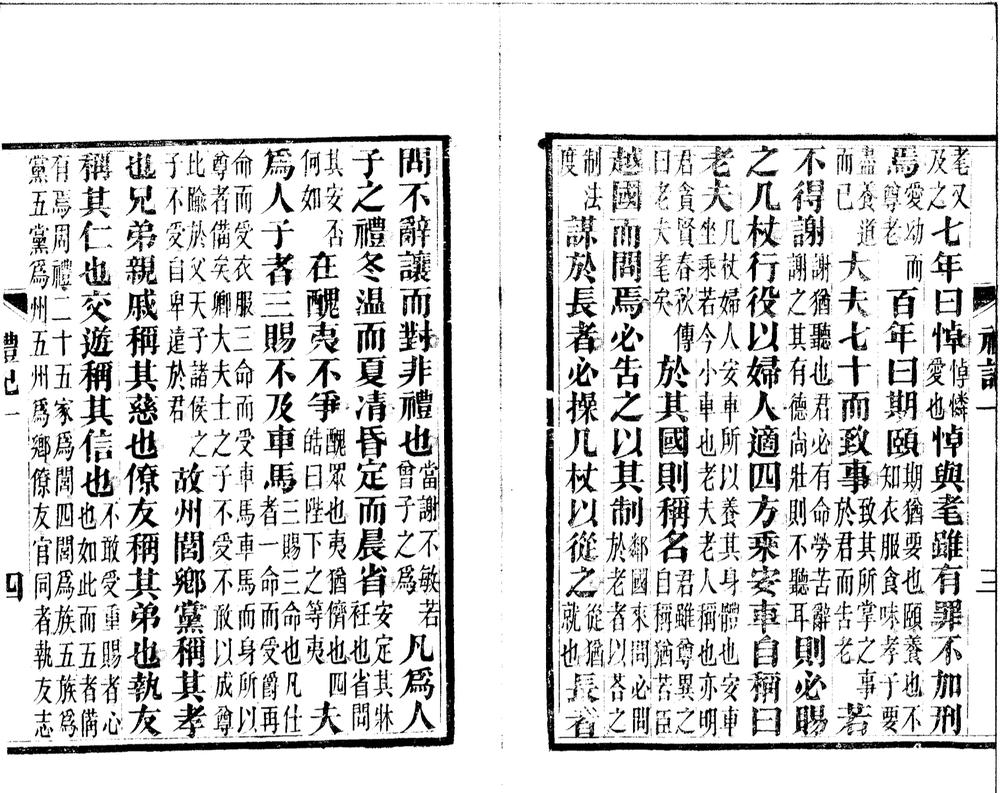 老又及之七年曰悼悼憐愛也悼與耄雖有罪不加刑
焉愛幼而尊老百年曰期頤期猶要也頤養也不知衣服食味孝子要
盡養道而已大夫七十而致事致其所掌之事於君而告老若
不得謝謝猶聽也君必有命勞苦辭謝之其有德尚壯則不聽耳則必賜
之几杖行役以婦人適四方乘安車自稱曰
老夫几杖婦人安車所以養其身體也安車坐乘若今小車也老夫老人稱也亦明
君貪賢春秋傳曰老夫耄矣於其國則稱名君雖尊異之自稱猶若臣
越國而問焉必告之以其制鄰國來問必問於老者以荅之
制法度謀於長者必操几杖以從之從猶就也長者
禮記一 三
問不辭讓而對非禮也當謝不敏若曾子之為凡爲人
子之禮冬温而夏凊昏定而晨省安定其牀衽也省問
其安否何如在醜夷不爭醜眾也夷猶儕也四皓曰陛下之等夷夫
爲人子者三賜不及車馬三賜三命也凡仕者一命而受爵再
命而受衣服三命而受車馬車馬而身所以尊者備矣卿大夫士之子不受不敢以成尊
比踰於父天子諸侯之子不受自卑遠於君故州閭鄉黨稱其孝
也兄弟親戚稱其慈也僚友稱其弟也執友
稱其仁也交遊稱其信也不敢受重賜者心也如此而五者備
有焉周禮二十五家爲閭四閭爲族五族爲黨五黨爲州五州爲鄉僚友官同者執友志
禮記一 四